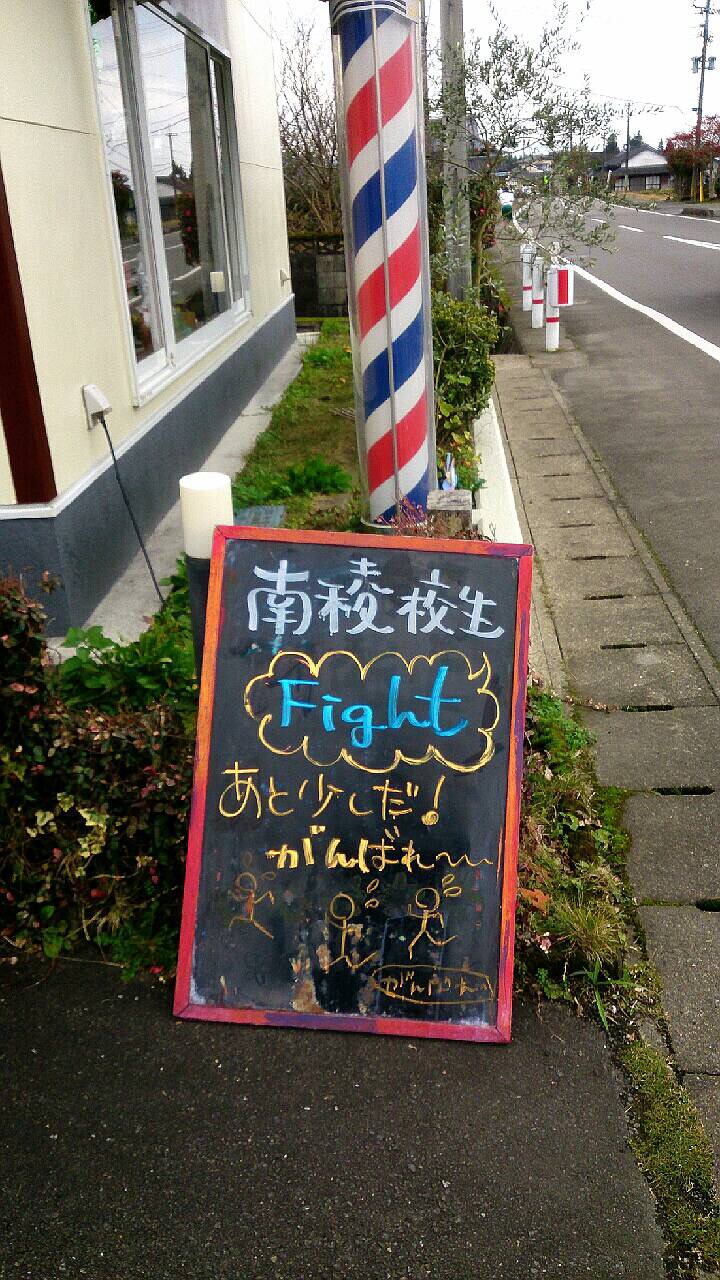 南稜校生
Fight
あと少しだ！
がんばれ〜